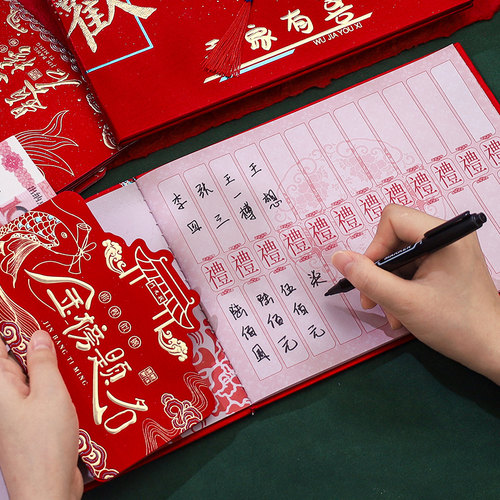 歡
吾家有喜
WU JIA YOU XI
李四
张三
王一樽
王想
禮 禮 禮 禮 禮 禮 禮 禮 禮 禮 禮 禮
陆佰圆
陆佰元
伍佰元
柒
金榜题名
JIN BANG TI MING